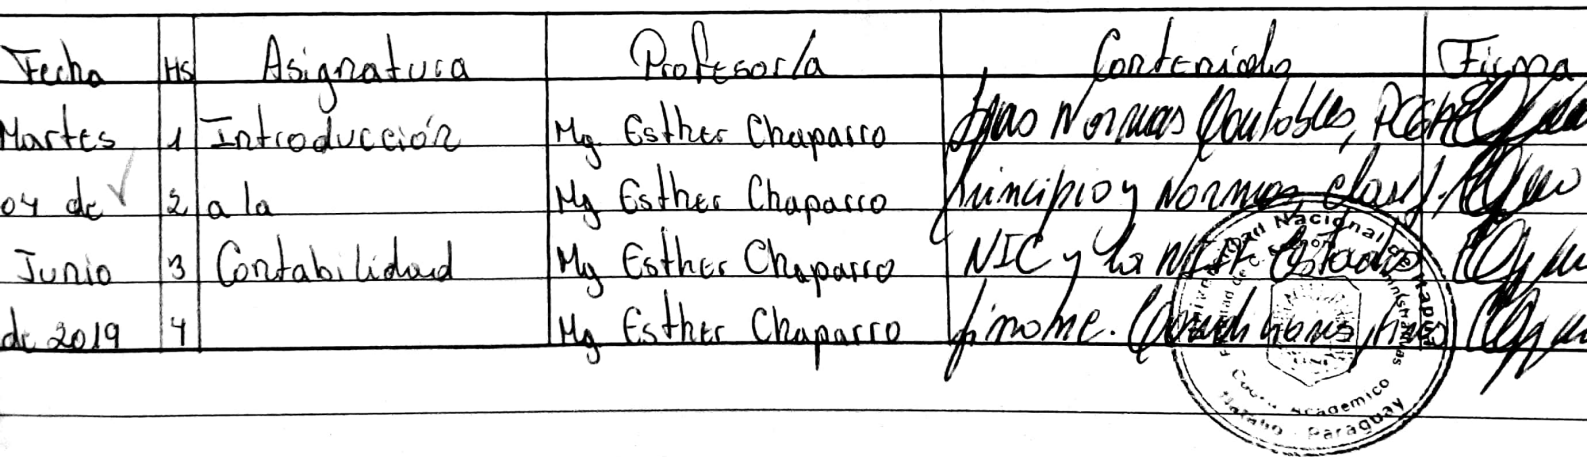 Fecha HS Asignatura Profesor/a Contenido Firma
Martes 1 Introducción Mg. Esther Chaparro Normas Contables, PCGA
04 de 2 a la Mg Esther Chaparro Principio y Normas, clasif.
Junio 3 Contabilidad Mg Esther Chaparro NIC y la
de 2019 4 Mg Esther Chaparro
Universidad Nacional de Itapúa
Academico
Natalio - Paraguay